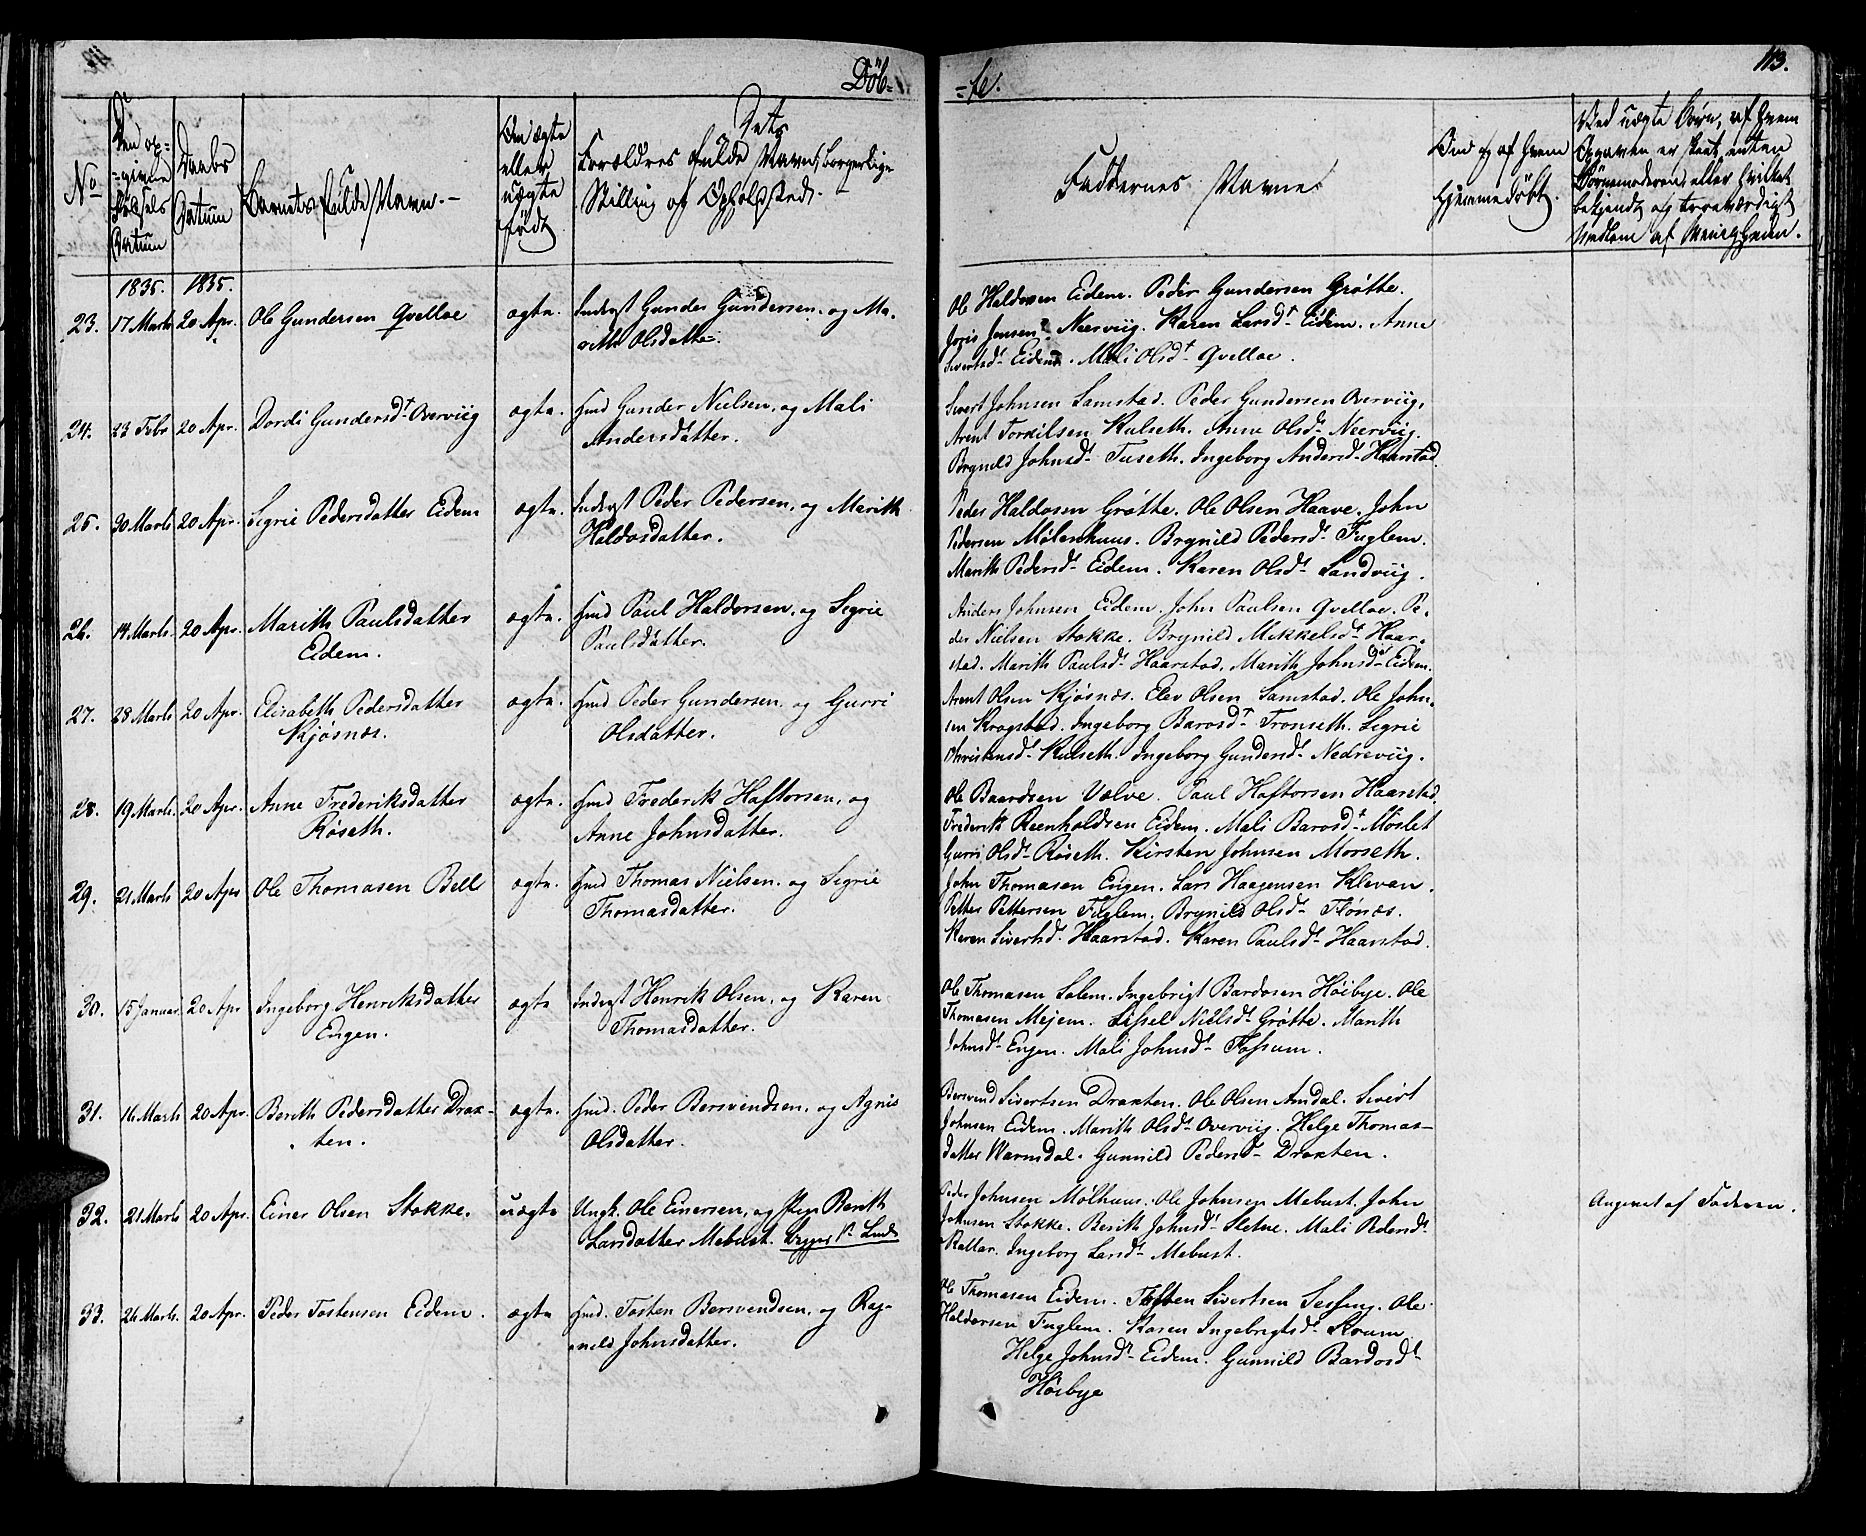 Døb-
-te.
113.
No
Den op-
-givne
Fødsels
Datum
Daabs
Datum
Barnets fulde Navn.-
Om ægte
eller
uægte
født
Dets
Forældres fulde Navne, borgerlige
Stilling og Opholdsted.
Faddernes Navne
Om og af hvem
hjemmedøbt.
Ved uægte Børn, af hvem
Opgaven er skeet, enten
Børnemoderen eller hvilket
bekjendt og troeværdigt
Medlem af Menigheden.
1835. 1835.
23. 17 Marts 20 Apr. Ole Gundersen Qvelloe ægte. Inderst Gunder Gundersen, og Ma-
-rith Olsdatter.
Ole Haldosen Eidem. Peder Gundersen Grøtte.
Joris Jensen Neerviig. Karen Larsdt Eidem. Anne
Sivertsdt Eidem. Mali Olsdt Qvelloe.
24. 23 Febr 20 Apr. Dordi Gundersdt Overviig ægte. Hmd Gunder Nielsen, og Mali
Andersdatter.
Sivert Johnsen Samstad. Peder Gundersen Overviig.
Arent Torkilsen Kulseth. Anne Olsdt Neerviig.
Brynild Johnsdt Tuseth. Ingeborg Andersdt Haarstad.
25. 30 Marts 20 Apr. Segrie Pedersdatter Eidem ægte. Inderst Peder Pedersen, og Marith
Haldosdatter.
Peder Haldosen Grøtte. Ole Olsen Haave. John
Pedersen Mølenhuus. Brynild Pedersdt Fuglem.
Marith Pedersdt Eidem. Karen Olsdt Sandviig.
26. 14 Marts 20 Apr. Marith Paulsdatter
Eidem.
ægte. Hmd Paul Haldorsen, og Segrie
Paulsdatter.
Anders Johnsen Eidem. John Paulsen Qvelloe. Pe-
der Nielsen Stokke. Brynild Mikkelsdt Haar-
stad. Marith Paulsdt Haarstad. Marith Johnsdt Eidem.
27. 28 Marts 20 Apr. Elisabeth Pedersdatter
Kjøsnæs.
ægte. Hmd Peder Gundersen, og Gurri
Olsdatter.
Arent Olsen Kjøsnæs. Elev Olsen Samstad. Ole John-
sen Krogstad. Ingeborg Barosdt Tronseth. Segrie
Christensdt Kulseth. Ingeborg Gundersdt Nedreviig.
28. 19 Marts 20 Apr. Anne Frederiksdatter
Røseth.
ægte. Hmd Frederik Haftorsen, og
Anne Johnsdatter.
Ole Baardsen Vælve. Paul Haftorsen Haarstad.
Frederik Reenholdsen Eidem. Mali Barosdt Moslet
Gurri Olsdt Røseth. Kirsten Johnsen Morseth.
29. 21 Marts 20 Apr Ole Thomasen Bell ægte. Hmd Thomas Nielsen, og Segrie
Thomasdatter.
John Thomasen Engen. Lars Haagensen Klevan.
Petter Pettersen Fuglem. Brynild Olsdt Flønæs.
Karen Sivertsd. Haarstad. Karen Paulsdt Haarstad.
30. 15 Januar 20 Apr Ingeborg Henriksdatter
Engen.
ægte Inderst Henrik Olsen, og Karen
Thomasdatter.
Ole Thomasen Solem. Ingebrigt Bardosen Høibye. Ole
Thomasen Mejem. Sissel Nielsdt Grøtte. Marith
Johnsdt Engen. Mali Johnsdt Fossum.
31. 16 Marts 20 Apr. Berith Pedersdatter Drax-
ten.
ægte. Hmd. Peder Bersvendsen, og Agnis
Olsdatter.
Bersvend Sivertsen Draxten. Ole Olsen Amdal. Sivert
Johnsen Eidem. Marith Olsdt Overviig. Helge Thomas-
datter Warmdal. Gunnild Pedersdt Draxten.
32. 21 Marts 20 Apr. Einer Olsen Stokke. uægte Ungk. Ole Einersen, og Pige Berith
Larsdatter Mebust.
Peder Johnsen Mølhuus. Ole Johnsen Mebust. John
Johnsen Stokke. Berith Johnsdt Sletne. Mali Pedersdt
Rallar. Ingeborg Larsdt Mebust.
Angivet af Faderen.
33. 26 Marts. 20 Apr. Peder Tostensen Eidem. ægte Hmd. Tosten Bersvendsen, og Rag-
-nild Johnsdatter.
Ole Thomasen Eidem. Tosten Sivertsen Sessing. Ole
Haldorsen Fuglem. Karen Ingebrigtsdt Krum
Helge Johnsdt Eidem. Gunnild Bardosdt
Høibye